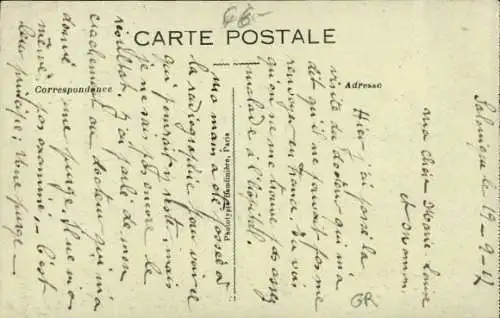 66-
CARTE POSTALE
Correspondance
Adresse
Phototypie Baudinière, Paris
Salonique le 19-9-17
Ma chère Marie-Louise
et maman
Hier j'ai passé la
visite du docteur qui m'a
dit qu'il ne pouvait pas me
renvoyer en France. Je vois
qu'on ne me trouve pas assez
malade à l'hôpital.
Ma main a été passée à
la radiographie pour voir ce
qui pourrait y rester, mais
je ne sais pas encore le
résultat. J'ai parlé de mon
crachement au docteur qui m'a
donné une purge. Il ne m'a
même pas examiné - C'est
leur principe; Une purge -
GR